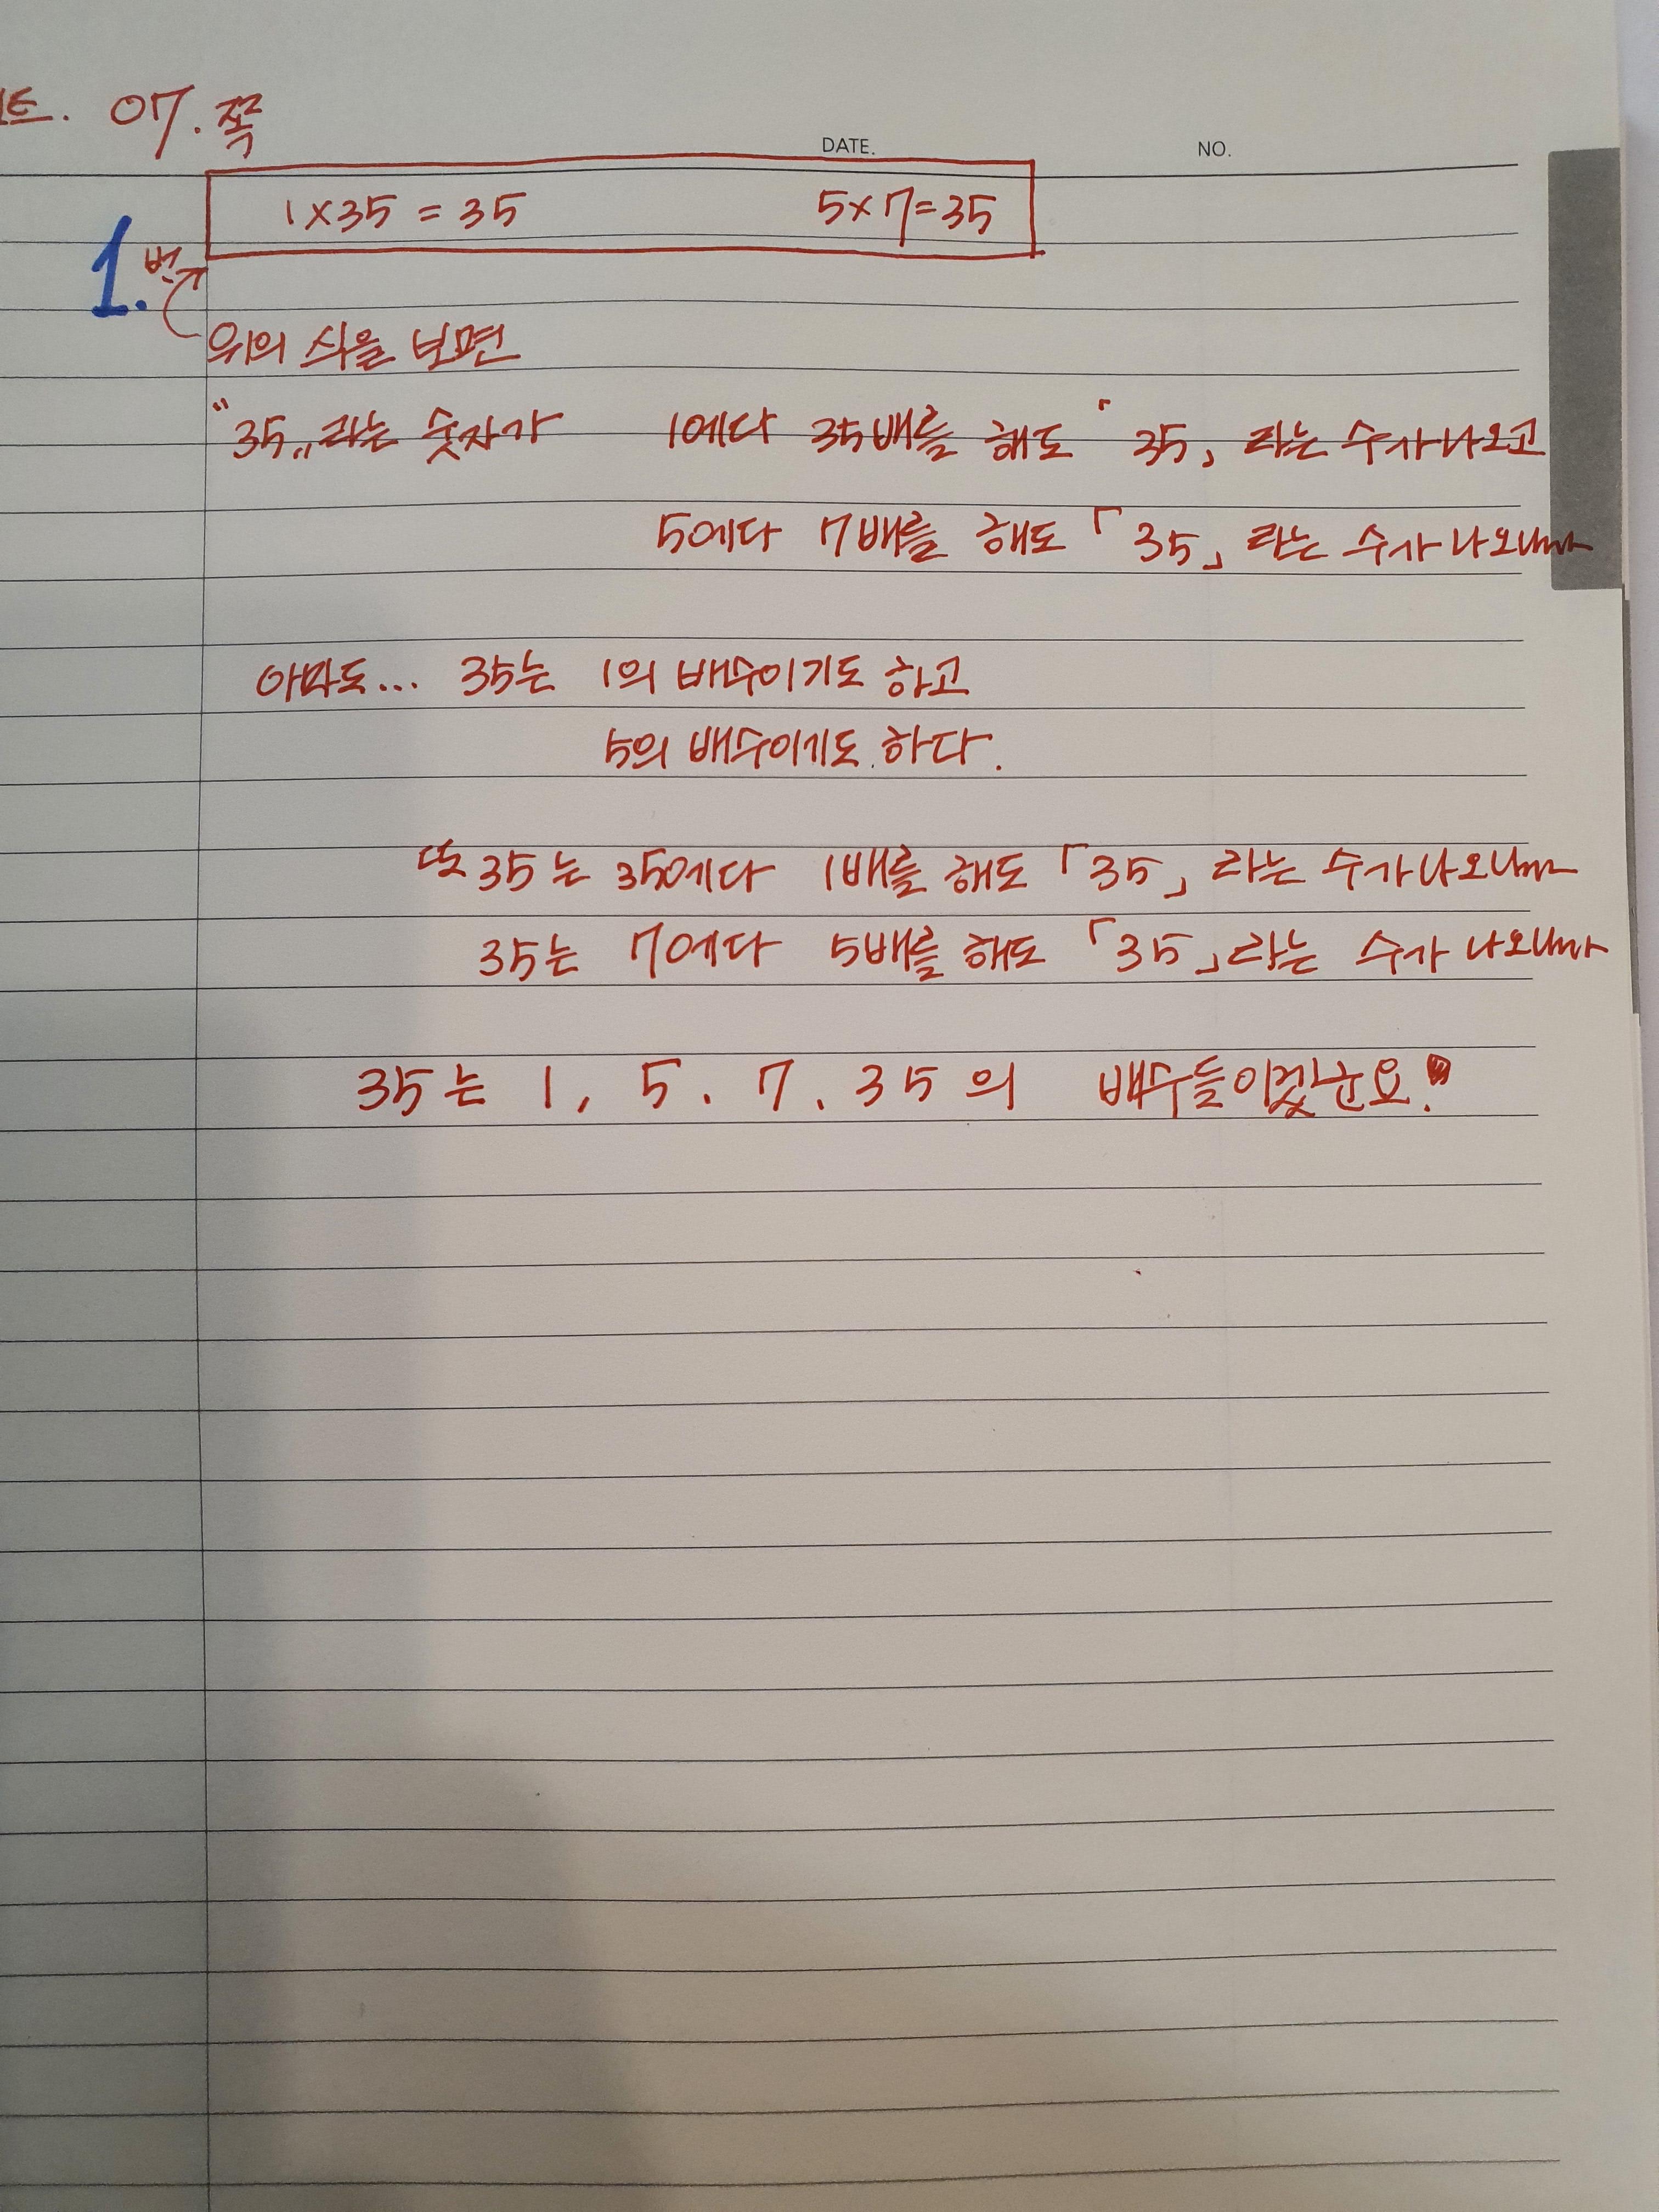 07. 쪽
DATE. NO.
1×35 = 35 5×7=35
1. 번
위의 식을 보면
"35„라는 숫자가 1에다 35배를 해도 「35」 라는 수가 나오고
5에다 7배를 해도 「35」 라는 수가 나오니까
아마도... 35는 1의 배수이기도 하고
5의 배수이기도 하다.
또 35는 35에다 1배를 해도 「35」 라는 수가 나오니까
35는 7에다 5배를 해도 「35」라는 수가 나오니까
35는 1, 5. 7. 35의 배수들이겠군요!